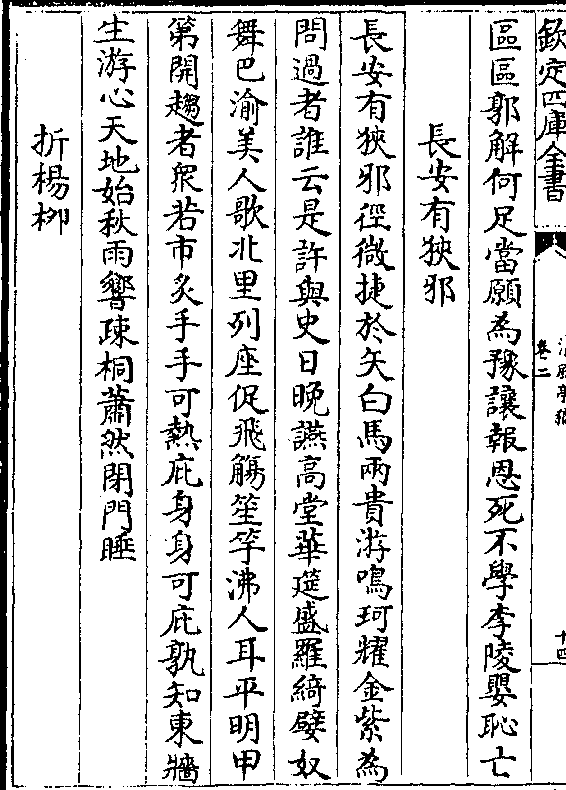 欽定四庫全書
卷二
十四
區區郭解何足當願為豫讓報恩死不學李陵嬰恥亡
長安有狹邪
長安有狹邪徑微捷於矢白馬兩貴游鳴珂耀金紫為
問過者誰云是許與史日晚讌高堂華筵盛羅綺嬖奴
舞巴渝美人歌北里列座促飛觴笙竽沸人耳平明甲
第開趨者衆若市炙手手可熱庇身身可庇孰知東牆
生游心天地始秋雨響疎桐蕭然閉門睡
折楊栁